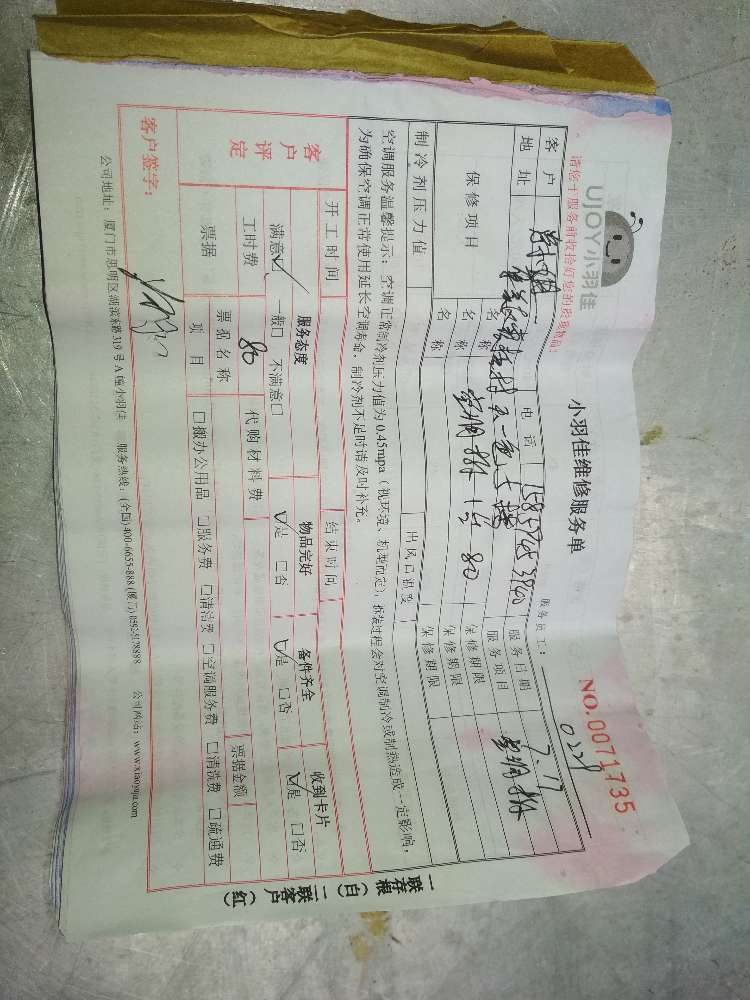 UJOY小羽佳
小羽佳维修服务单
NO.0071735
请您于服务前收拾好您的贵重物品!
服务员工: 029
客户 电话 服务日期 7.17
地址 服务项目 空调拆
保修项目 名称 保修期限
名称 空调拆1台 80 保修期限
名称 保修期限
制冷剂压力值 出风口温度
空调服务温馨提示:空调正常制冷剂压力值为0.45mpa(视环境、机型而定),拆装过程会对空调制冷或制热造成一定影响,
为确保空调正常使用延长空调寿命,制冷剂不足时请及时补充。
开工时间 结束时间
客户评定 服务态度 物品完好 备件齐全 收到卡片
满意☑ 一般□ 不满意□ ☑是 □否 ☑是 □否 ☑是 □否
工时费 80 代购材料费
票据 票据名称 票据金额
项目 □搬办公用品 □服务费 □清洁费 □空调服务费 □清洗费 □疏通费
客户签字:
公司地址:厦门市思明区湖滨东路319号A幢小羽佳 服务热线:(全国)400-6655-888 (厦门)0592-5178888 公司网站:www.xiaoyujia.com
一联存根(白) 二联客户(红)